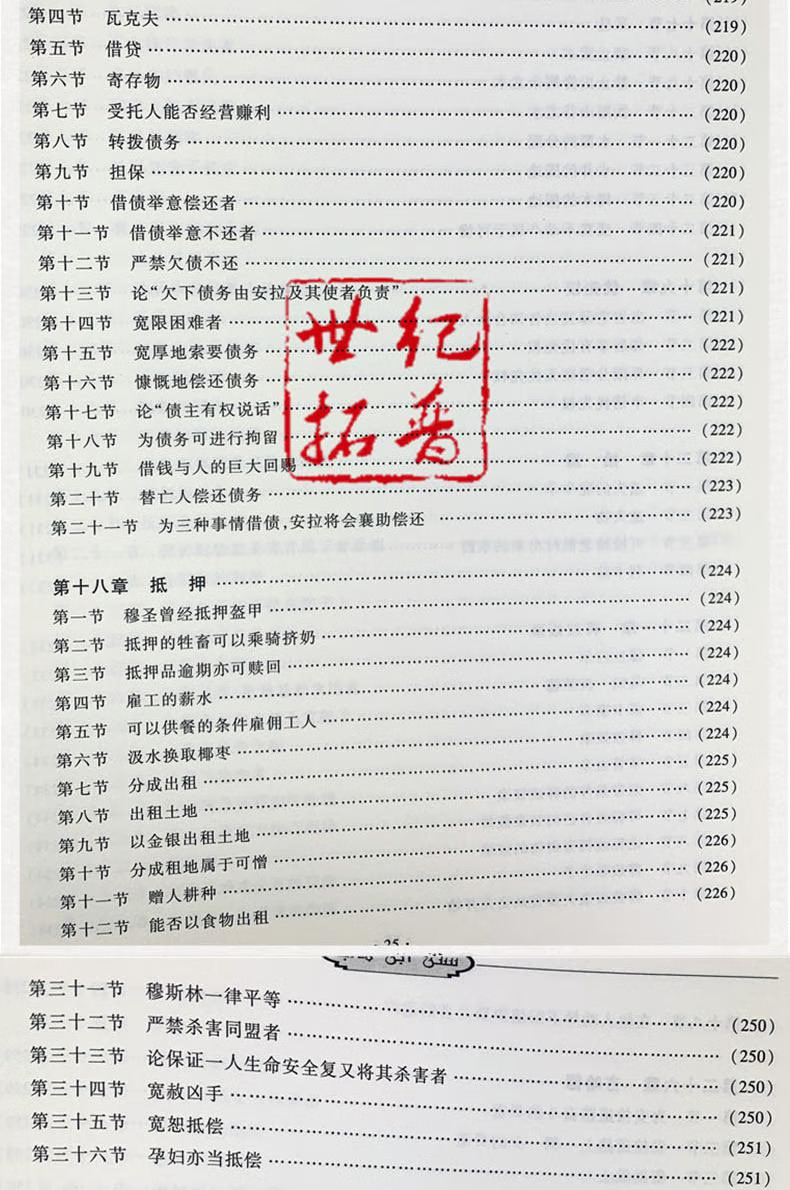 (219)
第四节 瓦克夫 ……………… (219)
第五节 借贷 ……………… (220)
第六节 寄存物 ……………… (220)
第七节 受托人能否经营赚利 ……………… (220)
第八节 转拨债务 ……………… (220)
第九节 担保 ……………… (220)
第十节 借债举意偿还者 ……………… (220)
第十一节 借债举意不还者 ……………… (221)
第十二节 严禁欠债不还 ……………… (221)
第十三节 论“欠下债务由安拉及其使者负责” ……………… (221)
第十四节 宽限困难者 ……………… (221)
第十五节 宽厚地索要债务 ……………… (222)
第十六节 慷慨地偿还债务 ……………… (222)
第十七节 论“债主有权说话” ……………… (222)
第十八节 为债务可进行拘留 ……………… (222)
第十九节 借钱与人的巨大回赐 ……………… (222)
第二十节 替亡人偿还债务 ……………… (223)
第二十一节 为三种事情借债,安拉将会襄助偿还 ……………… (223)
世纪
拓普
第十八章 抵 押 ……………… (224)
第一节 穆圣曾经抵押盔甲 ……………… (224)
第二节 抵押的牲畜可以乘骑挤奶 ……………… (224)
第三节 抵押品逾期亦可赎回 ……………… (224)
第四节 雇工的薪水 ……………… (224)
第五节 可以供餐的条件雇佣工人 ……………… (224)
第六节 汲水换取椰枣 ……………… (224)
第七节 分成出租 ……………… (225)
第八节 出租土地 ……………… (225)
第九节 以金银出租土地 ……………… (225)
第十节 分成租地属于可憎 ……………… (226)
第十一节 赠人耕种 ……………… (226)
第十二节 能否以食物出租 ……………… (226)
· 25 ·
第三十一节 穆斯林一律平等 ……………… (250)
第三十二节 严禁杀害同盟者 ……………… (250)
第三十三节 论保证一人生命安全复又将其杀害者 ……………… (250)
第三十四节 宽赦凶手 ……………… (250)
第三十五节 宽恕抵偿 ……………… (251)
第三十六节 孕妇亦当抵偿 ……………… (251)